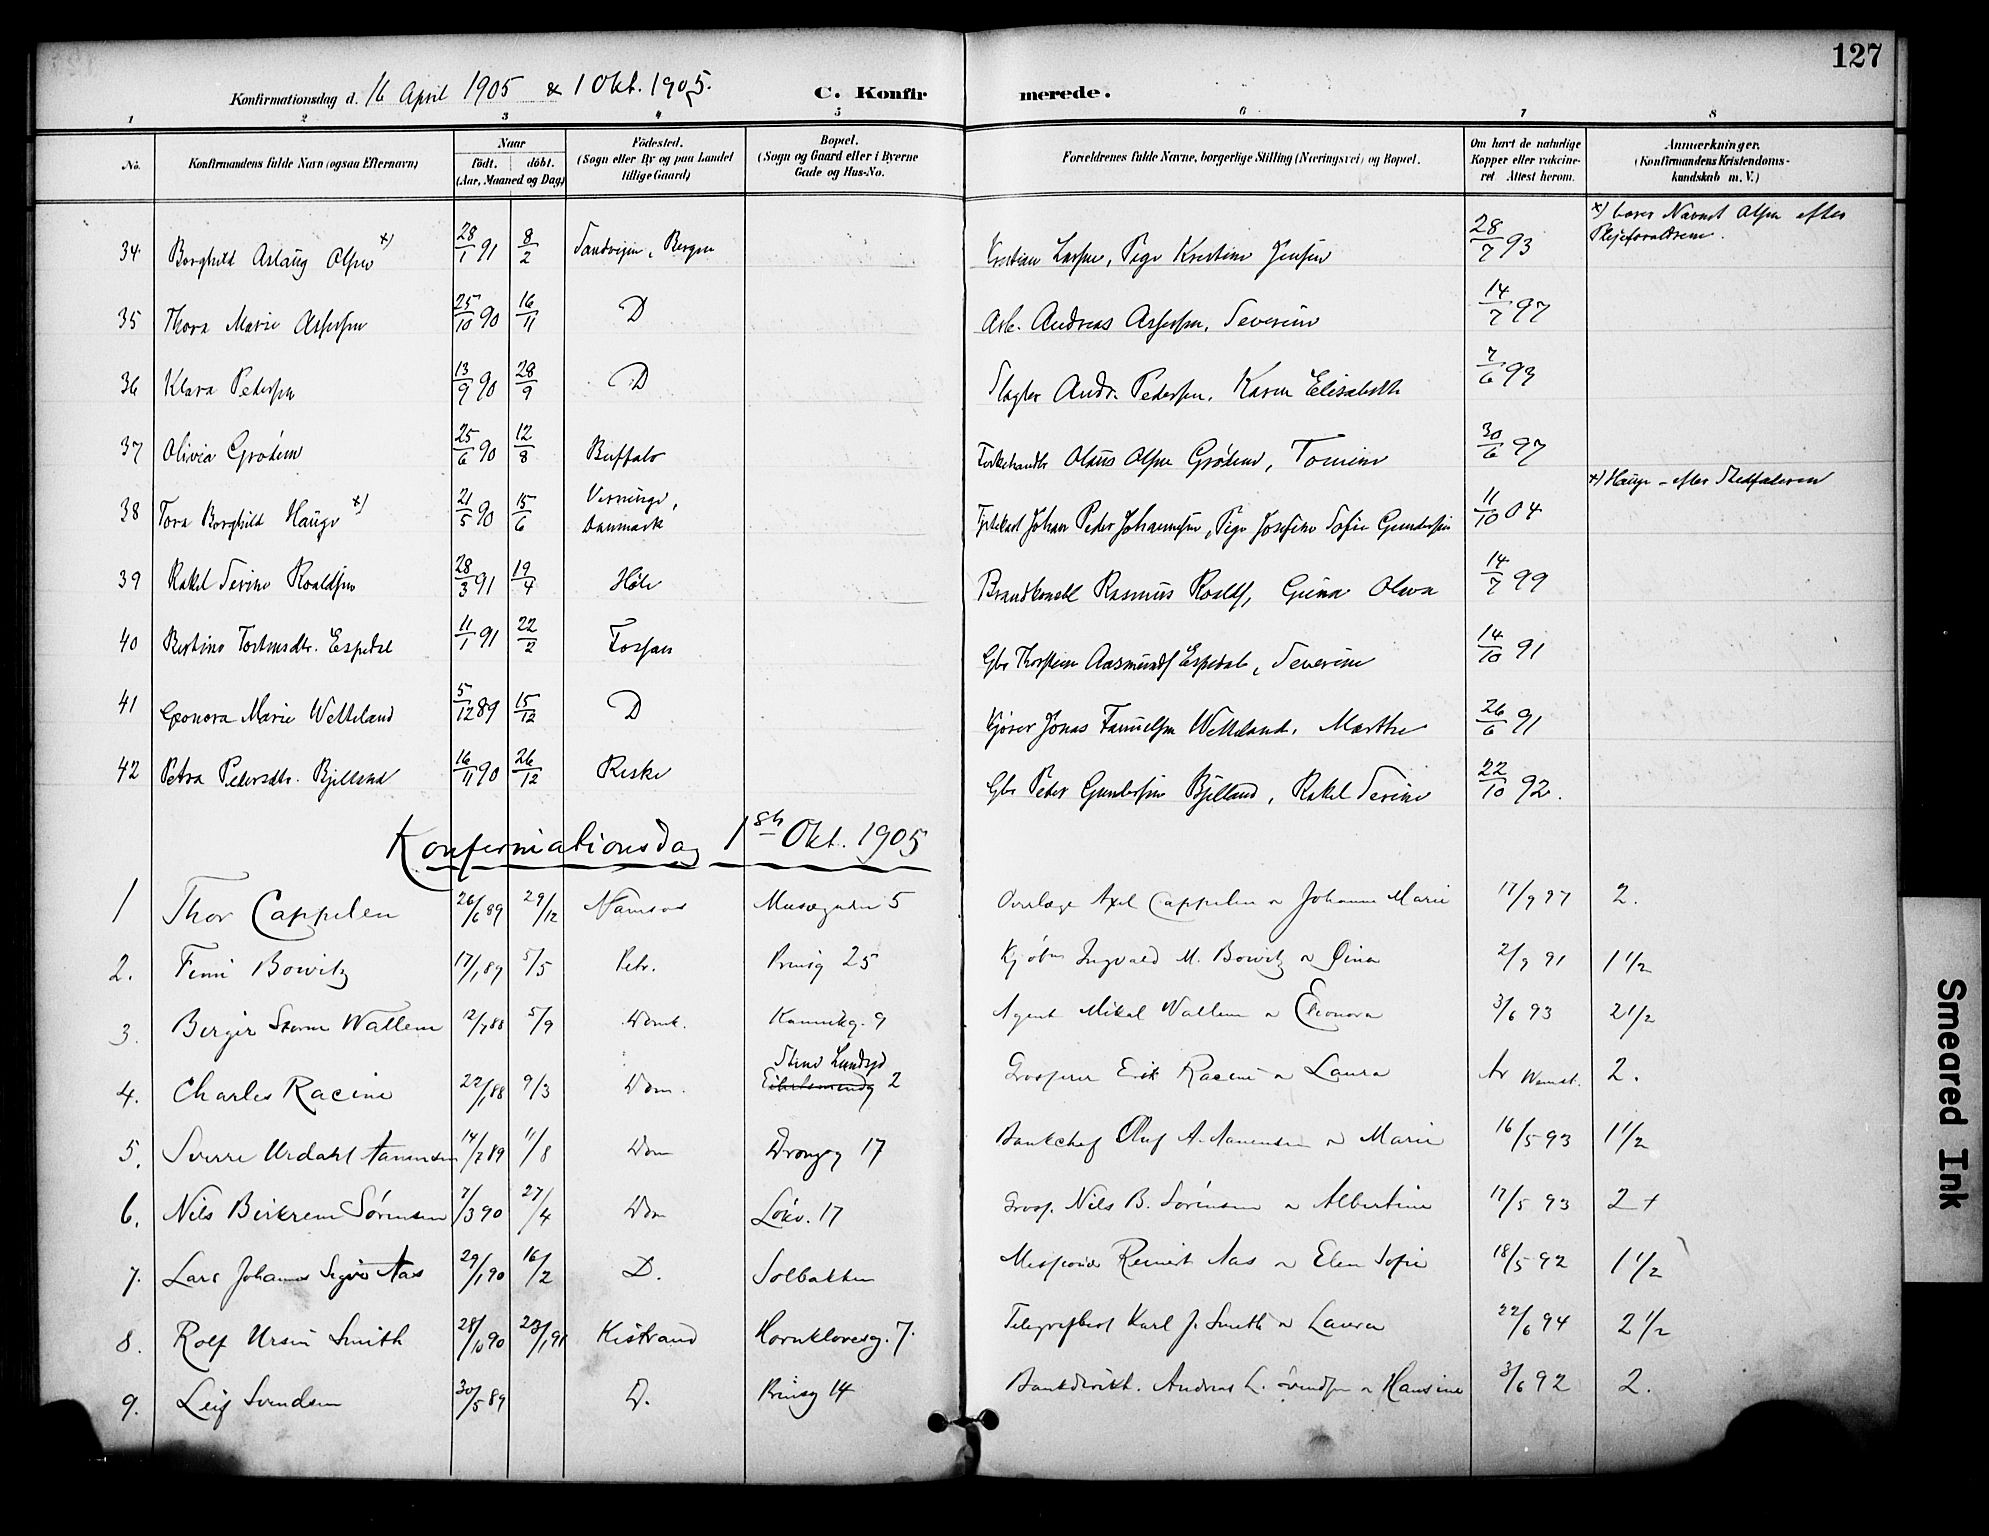 127
Konfirmationsdag d. 16 April 1905 & 1 Okt. 1905.
C. Konfirmerede.
1 2 3 4 5 6 7 8
No. Konfirmandens fulde Navn (ogsaa Efternavn) Naar födt. döbt. (Aar, Maaned og Dag) Födested. (Sogn eller By og paa Landet tillige Gaard) Bopæl. (Sogn og Gaard eller i Byerne Gade og Hus-No. Forældrenes fulde Navne, borgerlige Stilling (Næringsvei) og Bopæl. Om havt de naturlige Kopper eller vakcineret Attest herom. Anmærkninger. (Konfirmandens Kristendomskundskab m. V.)
34 Borghild Aslaug Olsen x) 28/1 91 8/2 Sandvigen, Bergen Kristian Larsen, Pige Kristine Jensen 28/7 93 x) bærer Navnet Olsen efter Plejeforældrene.
35 Thora Marie Asersen 25/10 90 16/11 D Arb. Andreas Asersen, Severine 14/7 97
36 Klara Petersen 13/9 90 28/9 D Slagter Andr. Petersen, Karen Elisabeth 7/6 93
37 Olivia Grødem 25/6 90 12/8 Buffalo Olaus Olsen Grødem, Tomine 30/6 97
38 Tora Borghild Hauge x) 21/5 90 15/6 Danmark Johan Peder Johannesen, Pige Josefine Sofie Gundersen 11/10 04 x) Hauge - efter Stedfaderen
39 Rakel Serine Roaldsen 28/3 91 19/4 Høle Brandkonstbl Rasmus Roalds, Guna Olava 14/7 99
40 Bertine Torstensdtr. Espedal 11/1 91 22/2 Fossan Gbr Thorstein Aasmunds Espedal, Severine 14/10 91
41 Eleonora Marie Wetteland 5/12 89 15/12 D Kjører Jonas Samuelsen Wetteland, Marthe 26/6 91
42 Petra Pedersdtr. Bjelland 16/11 90 26/12 Riske Gbr Peder Gundersen Bjelland, Rakel Serine 22/10 92.
Konfirmationsdag 1ste Okt. 1905
1 Thor Cappelen 26/6 89 29/12 Namsos Musegaden 5 Overlæge Axel Cappelen & Johanne Marie 17/9 97 2.
2. Finn Bowitz 17/1 89 5/5 Petr. Prinsg 25 Kjøbm Ingvald M. Bowitz & Dina 2/9 91 1 1/2
3. Birger Storm Wattem 12/7 88 5/9 Domk. Kannikg. 9 Agent Mikal Wattem & Eleonora 3/6 93 2 1/2
4. Charles Racine 22/1 88 9/3 Dom. 2 Grosserer Erik Racine & Laura Ar Vannet. 2.
5. Sverre Urdahl Aanensen 14/7 89 11/8 Dom Drongeg 17 Bankchef Oluf A. Aanensen & Marie 16/5 93 1 1/2
6. Nils Birkrem Sørensen 7/3 90 27/4 Dom Løkv. 17 Gross. Nils B. Sørensen & Albertine 17/5 93 2 +
7. Lars Johannes Sigve Aas 29/1 90 16/2 D. Solbakken Reinert Aas & Elen Sofie 18/5 92 1 1/2
8. Rolf Ursin Smith 28/10 90 23/1 91 Kistrand Hornklovesg. 7. Telegrafbest Karl J. Smith & Laura 22/6 94 2 1/2
9. Leif Svendsen 30/5 89 D. Prinsg 14 Bankdirekt. Andreas L. Svendsen & Hansine 3/6 92 2.
Smeared Ink